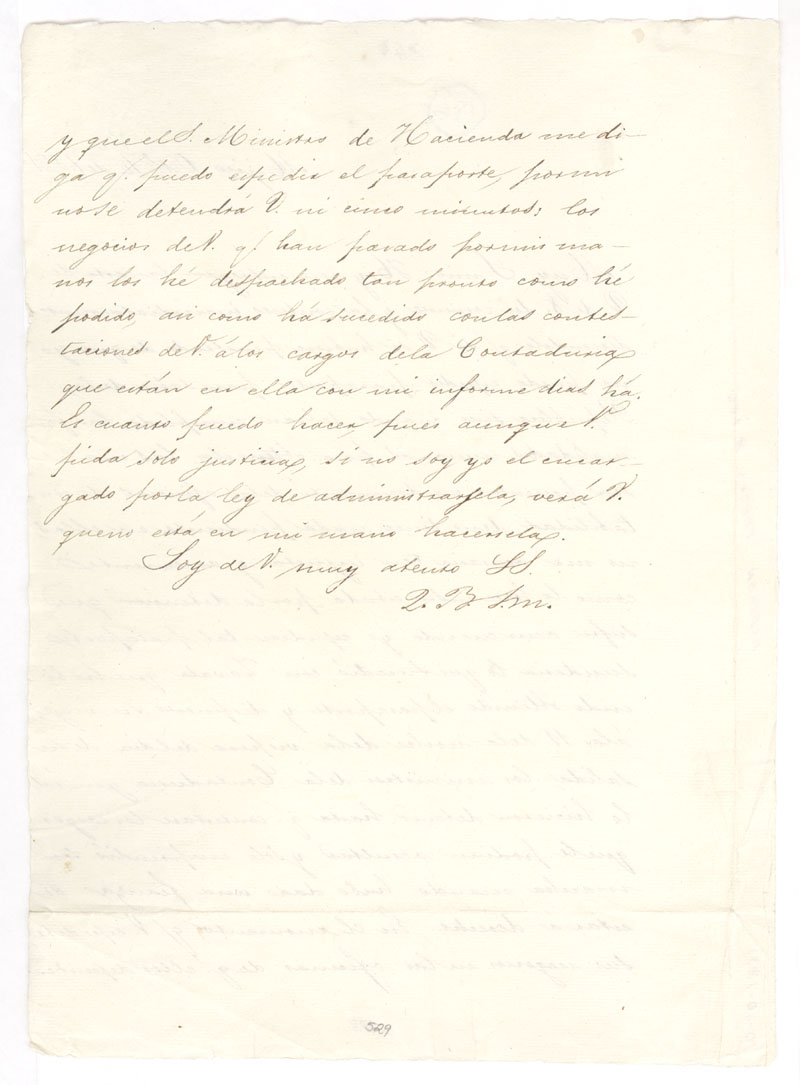 y que el S. Ministro de Hacienda me di-
ga q. puedo espedir el pasaporte, por mi
no se detendrá V. ni cinco minutos: los
negocios de V. q. han pasado por mis ma-
nos los hé despachado tan pronto como hé
podido, asi como há sucedido con las contes-
taciones de V. á los cargos de la Contaduria,
que están en ella con mi informe dias há.
Es cuanto puedo hacer, pues aunque V.
pida solo justicia, si no soy yo el encar-
gado por la ley de administrarsela, verá V.
que no está en mi mano hacersela.
Soy de V. muy atento S.S.
Q. B. S. M.
529